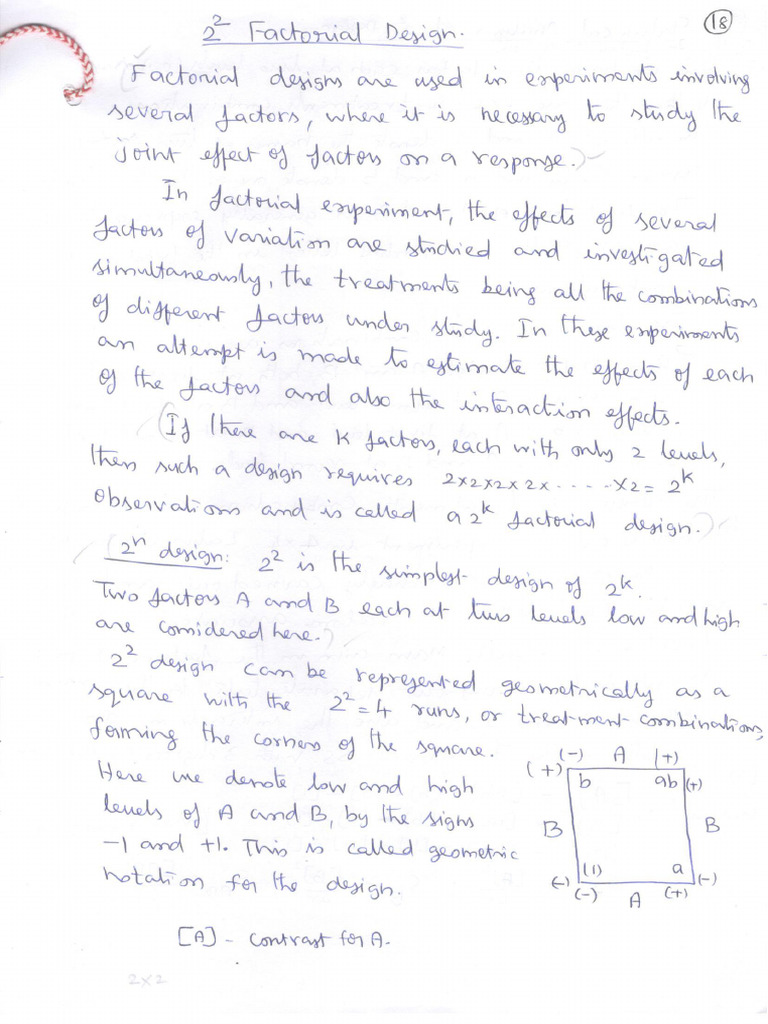 18
2² Factorial Design.
(Factorial designs are used in experiments involving
several factors, where it is necessary to study the
joint effect of factors on a response.)
In factorial experiment, the effects of several
factors of variation are studied and investigated
simultaneously, the treatments being all the combinations
of different factors under study. In these experiments
an attempt is made to estimate the effects of each
of the factors and also the interaction effects.
(If there are K factors, each with only 2 levels,
then such a design requires 2×2×2×2×.....×2 = 2ᵏ
observations and is called a 2ᵏ factorial design.)
(2ⁿ design: 2² is the simplest design of 2ᵏ.
Two factors A and B each at two levels low and high
are considered here.)
2² design can be represented geometrically as a
square with the 2² = 4 runs, or treatment combinations,
forming the corners of the square.
Here we denote low and high
levels of A and B, by the signs
-1 and +1. This is called geometric
notation for the design.
(-) A (+)
(+) b ab (+)
B B
(-) (1) a (-)
(-) A (+)
[A] - Contrast for A.
2×2